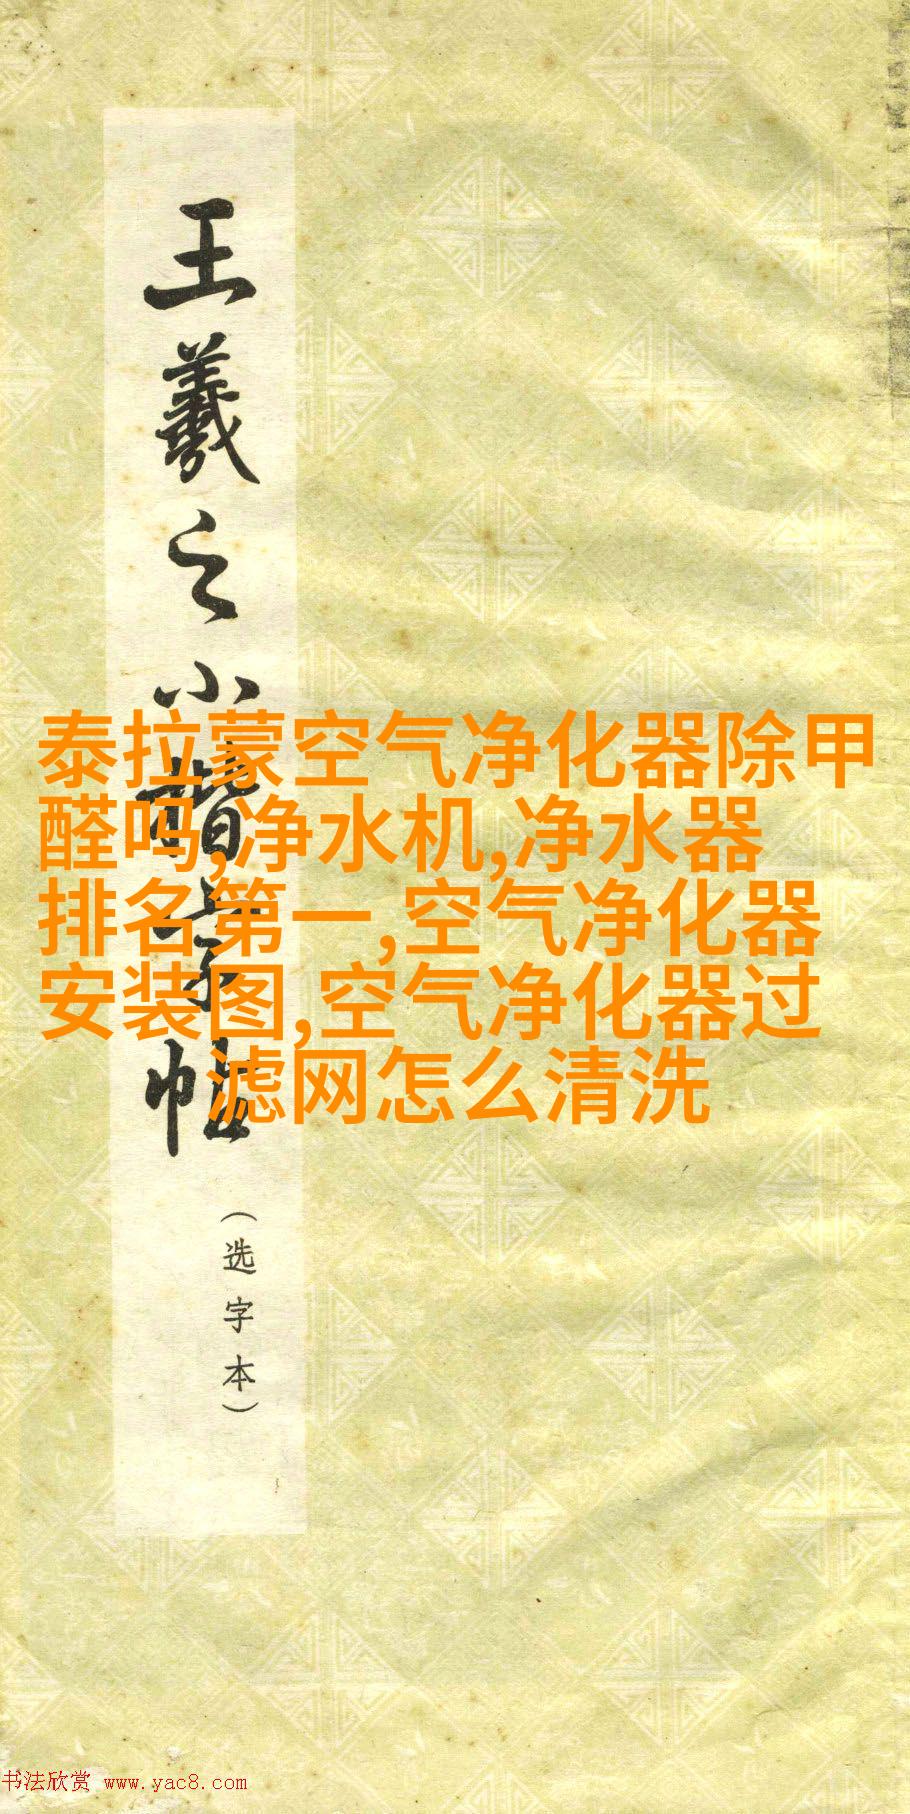 王羲之小楷字帖
(选字本)
泰拉蒙空气净化器除甲
醛吗,净水机,净水器
排名第一,空气净化器
安装图,空气净化器过
滤网怎么清洗
书法欣赏 www.yac8.com